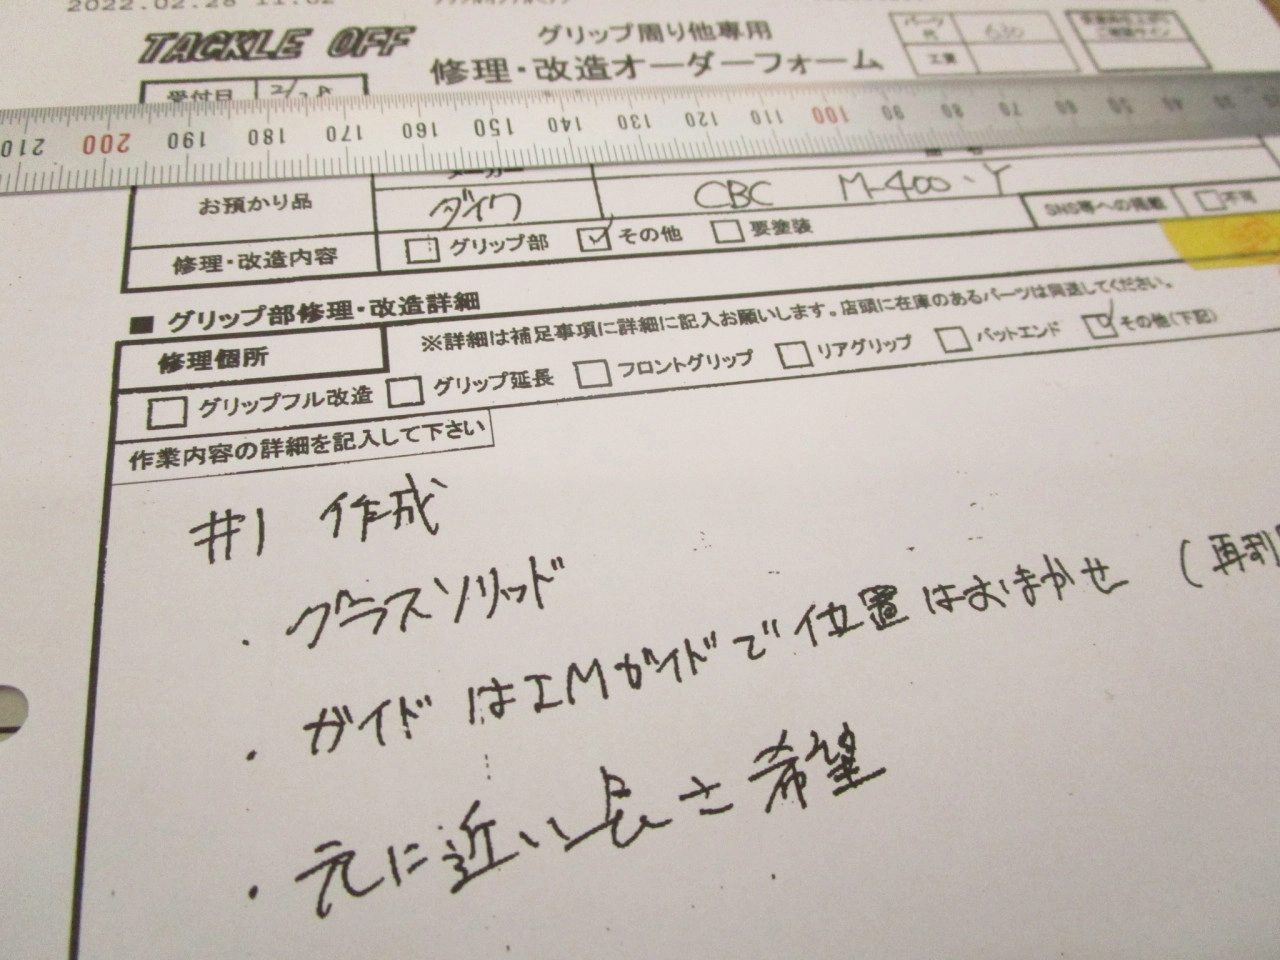 2022.02.28 11:02
TACKLE OFF
グリップ周り他専用
修理・改造オーダーフォーム
パーツ代
工賃
受付日
210 200 190 180 170 160 150 140 130 120 110 100 90 80 70 60 50 40
メーカー
お預かり品 ダイワ CBC M-400・Y
修理・改造内容 グリップ部 その他 要塗装 SNS等への掲載 不可
■ グリップ部修理・改造詳細
修理個所 ※詳細は補足事項に詳細に記入お願いします。店頭に在庫のあるパーツは同送してください。
グリップフル改造 グリップ延長 フロントグリップ リアグリップ バットエンド その他(下記)
作業内容の詳細を記入して下さい
#1 作成
・グラスソリッド
・ガイドはIMガイドで位置はおまかせ (再利
・元に近い長さ希望